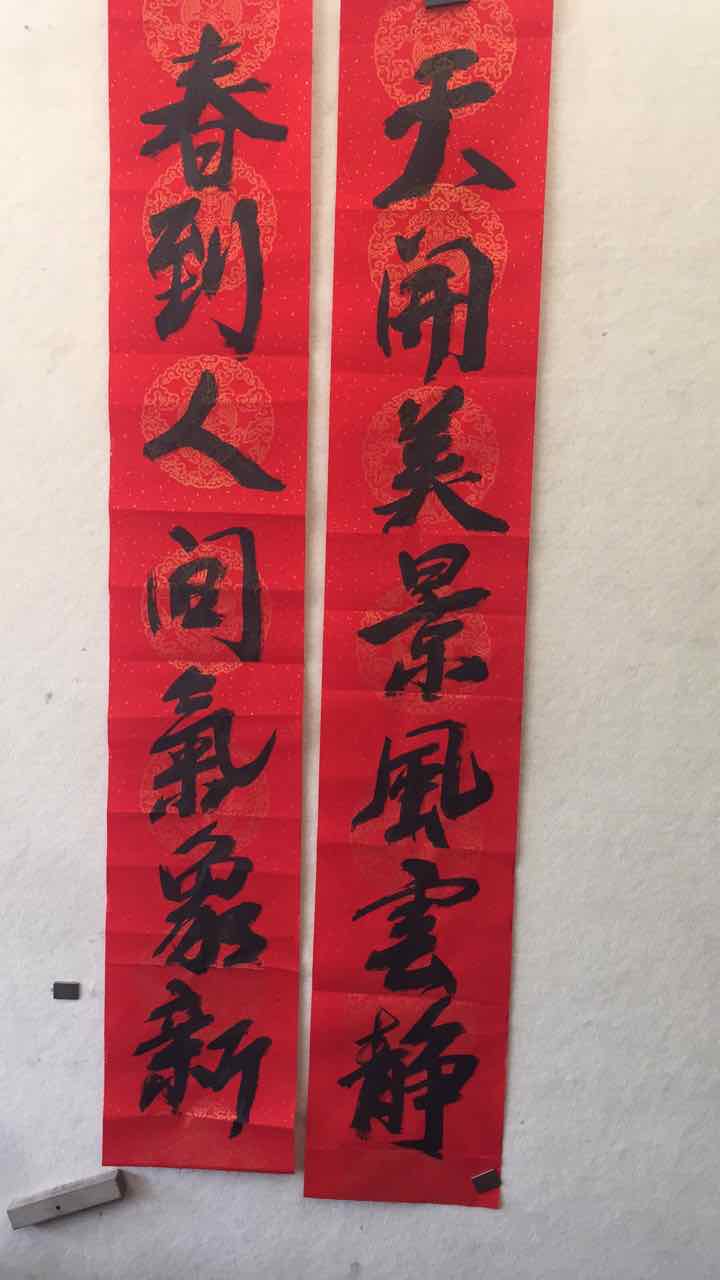 天開美景風雲静
春到人間氣象新